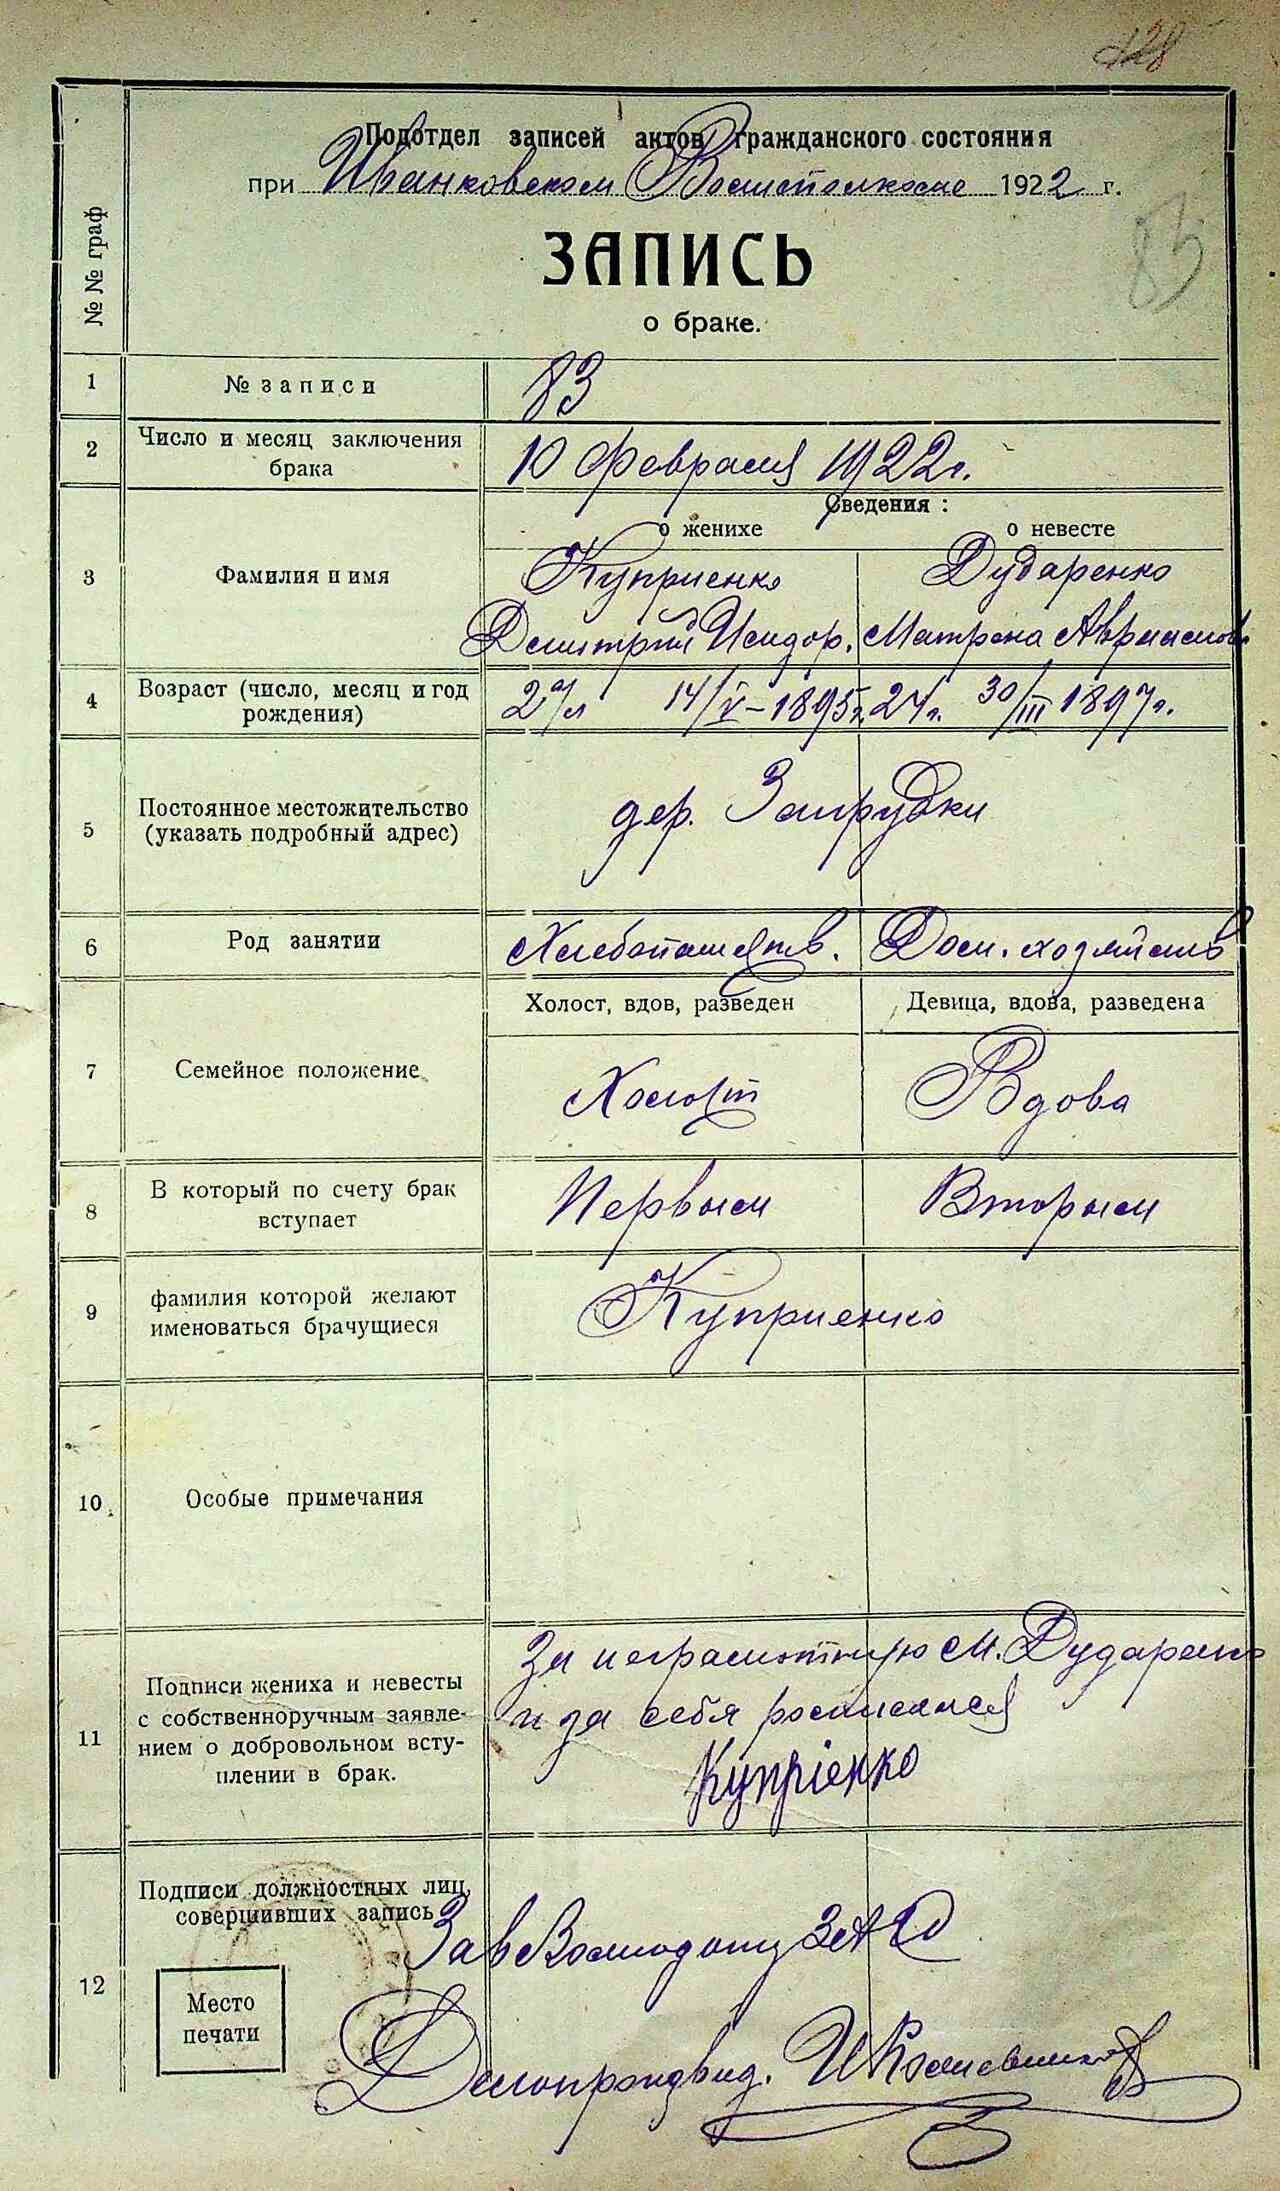 128
Подотдел записей актов гражданского состояния
при Иванковском Волисполкоме 1922 г.
83
ЗАПИСЬ
о браке.
№ № граф
1 № записи 83
2 Число и месяц заключения брака 10 февраля 1922 г.
Сведения :
о женихе о невесте
3 Фамилия и имя Куприенко Дударенко
Дмитрий Исидор. Матрена Авраамов
4 Возраст (число, месяц и год рождения) 14/V–1895 г. 24 г. 30/III 1897 г.
5 Постоянное местожительство (указать подробный адрес) дер. Запрудки
6 Род занятии Хлебопашеств. Дом. хозяйство
Холост, вдов, разведен Девица, вдова, разведена
7 Семейное положение Холост Вдова
8 В который по счету брак вступает Первым Вторым
9 фамилия которой желают именоваться брачущиеся Куприенко
10 Особые примечания
11 Подписи жениха и невесты с собственноручным заявлением о добровольном вступлении в брак.
За неграмотную М. Дударенко
и за себя росписался
Купріенко
12 Подписи должностных лиц, совершивших запись
Зав
Место
печати
Делопроизвид.